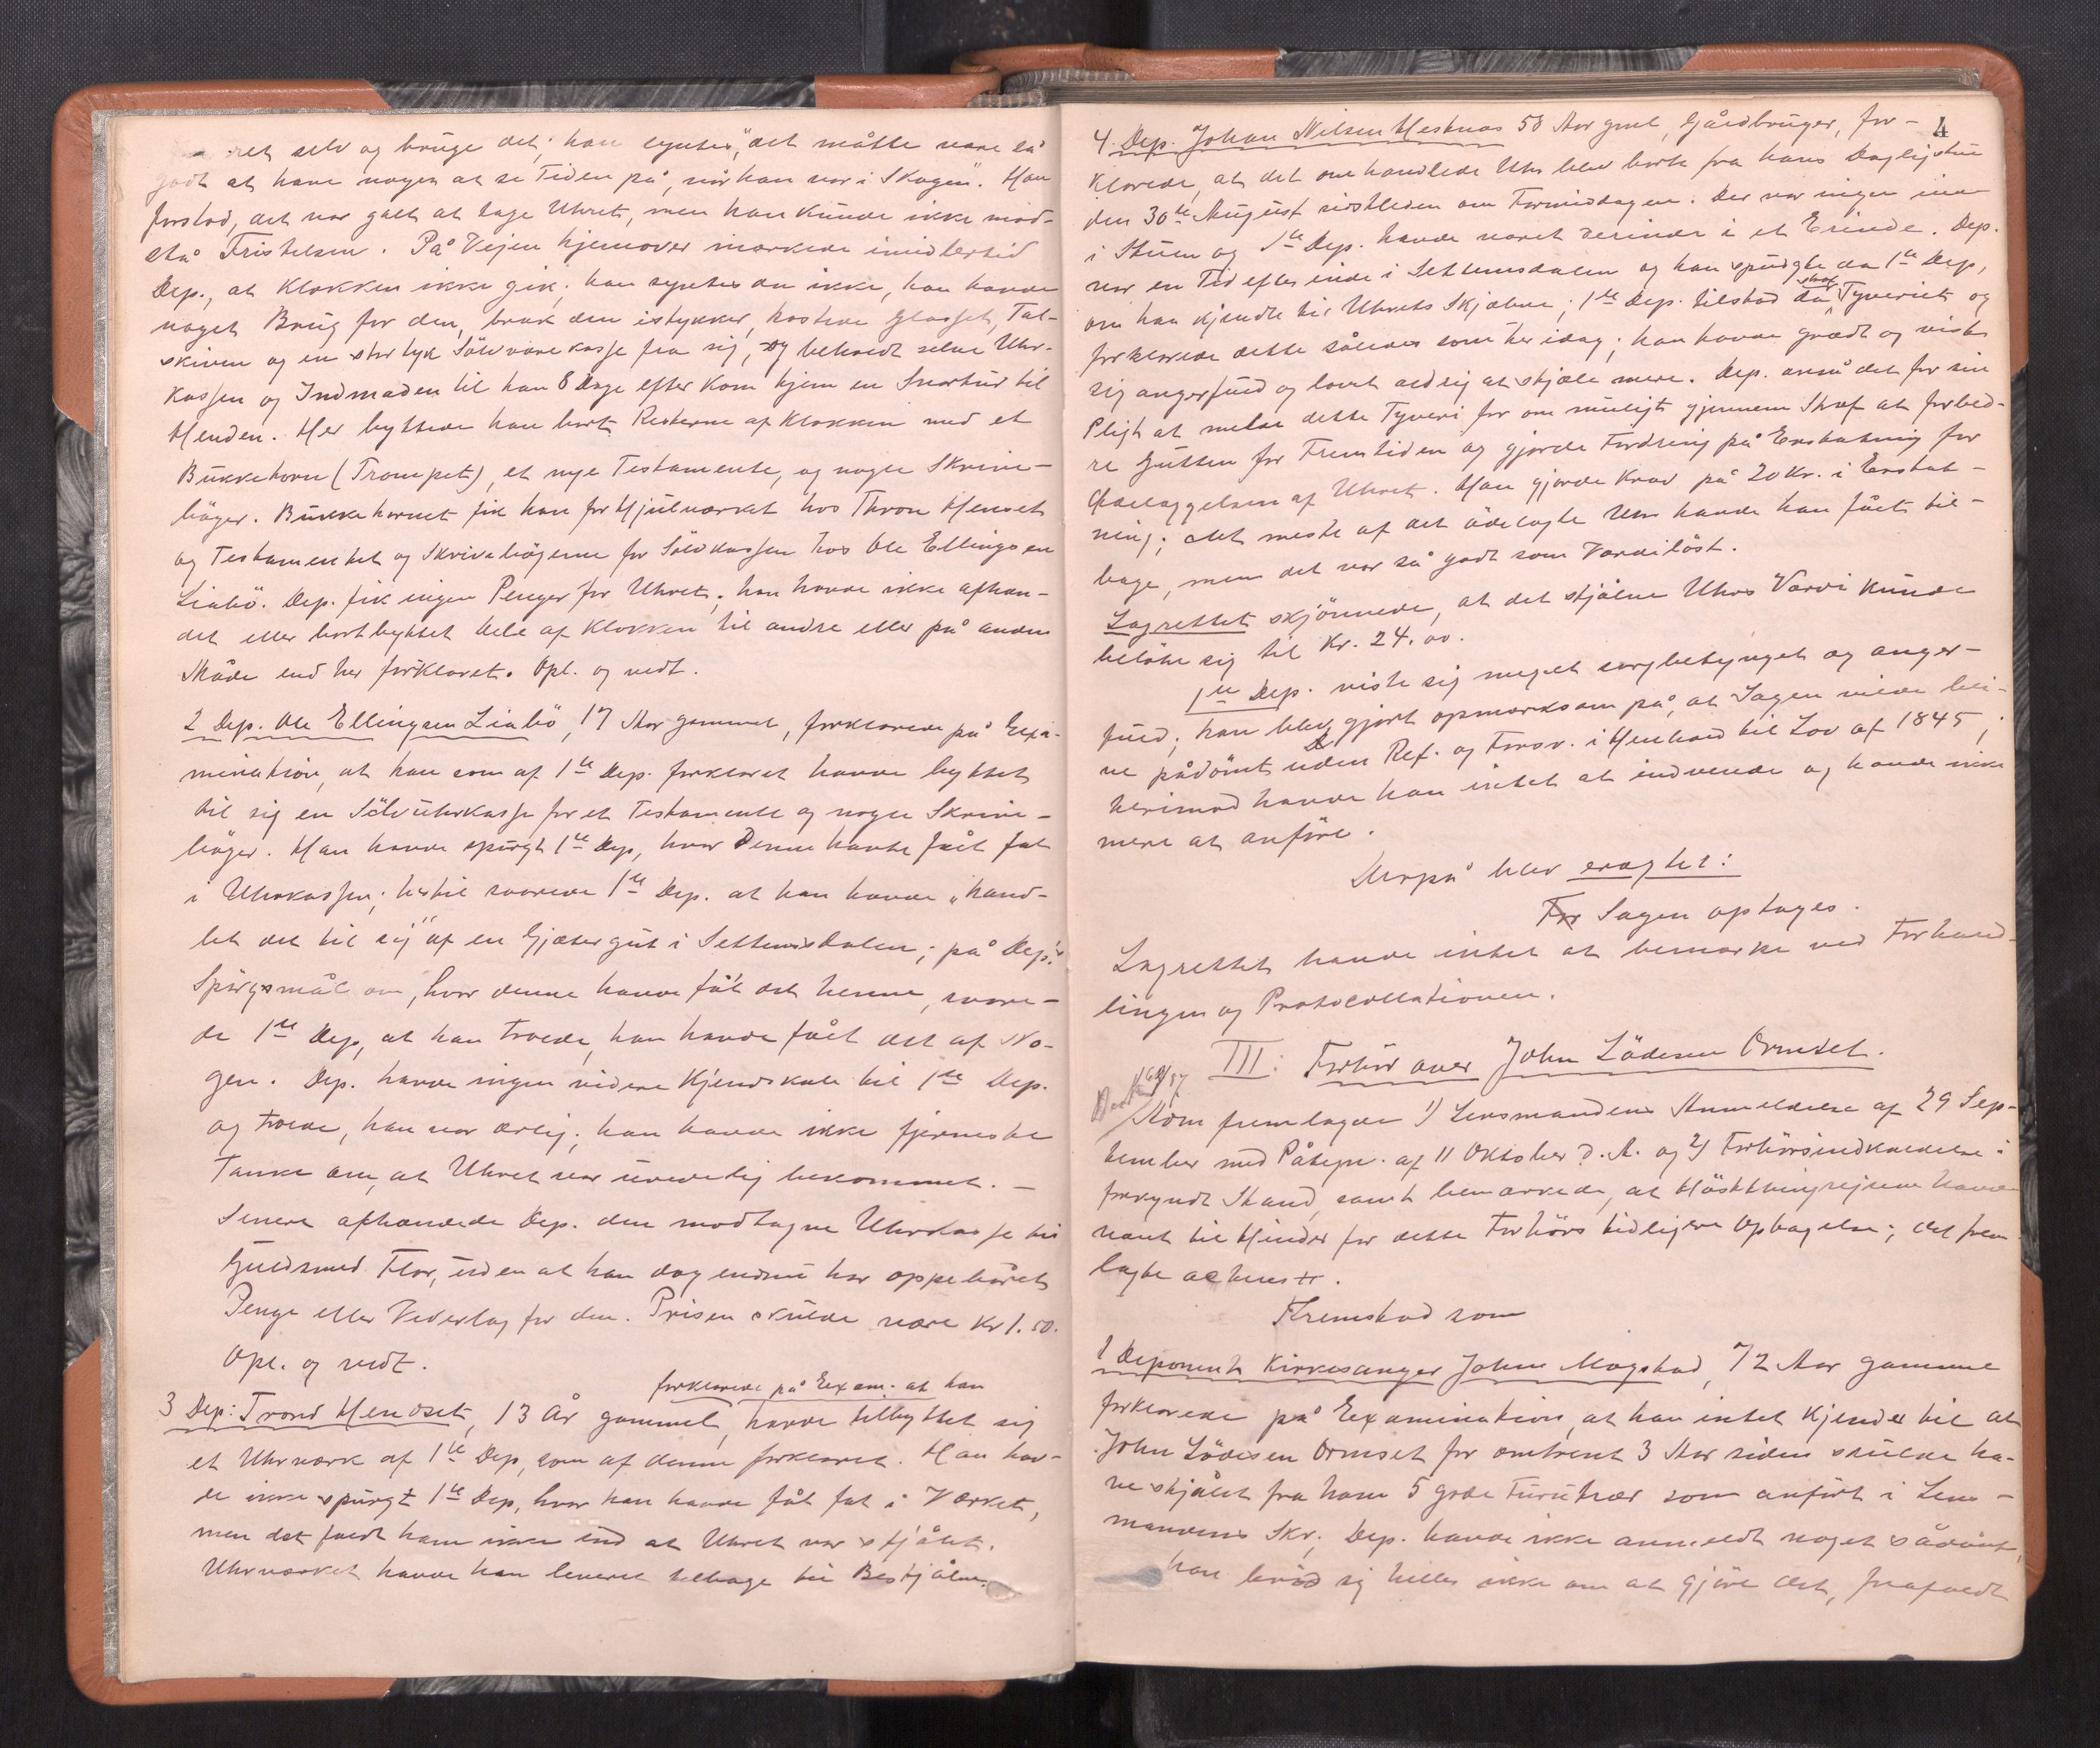 ret selv og bruge det; han syntes, "det måtte være så
godt at have nogen at se Tiden på, når han var i Skogen". Han
forstod, det var galt at tage Uhret, men han kunde ikke mod-
stå Fristelsen. På Vejen hjemover mærkede imidlertid
Dep., at Klokken ikke gik; han syntes da ikke, han havde
noget Brug for den, brak den istykker, kastede Glasset, Tal-
skiven og en stor tyk Sölvvare kasse fra sig, og beholdt selve Uhr-
kassen og Indmaden til han 8 Dage efter kom hjem en Snartur til
Henden. Her byttede han bort Resterne af Klokken med et
Bukkehorn (Trompet), et nye Testamente, og nogle Skrive-
böger. Bukkehornet fik han for Hjulværket hos Thron Henset
og Testamentet og Skrivebögerne for Sölvkassen hos Ole Ellingsen
Liabö. Dep. fik ingen Penger for Uhret; han havde ikke afhæn-
det eller bortbyttet Dele af Klokken til andre eller på anden
Måde end her forklaret. Opl. og vedt.
2 Dep. Ole Ellingsen Liabö, 17 Aar gammel, forklarede på Exa-
mination, at han som af 1ste Dep. forklaret havde byttet
til sig en Sölvuhrkasse for et Testamente og nogle Skrive-
böger. Han havde spurgt 1ste Dep, hvor Denne havde fåt fat
i Uhrkassen; hertil svarede 1ste Dep. at han havde "hand-
let det til sig" af en Gjætergut i Settemsdalen; på Dep.s
Spörgsmål om, hvor denne havde fåt det henne, svare-
de 1ste Dep, at han troede, han havde fået det af No-
gen. Dep. havde ingen videre Kjendskab til 1ste Dep.
og troede, han var ærlig; han havde ikke fjerneste
Tanke om, at Uhret var uredelig bekommet. —
Senere afhændede Dep. den modtagne Uhrkasse til
Guldsmed Flor, uden at han dog endnu har oppebåret
Penge eller Vederlag for den. Prisen skulde være Kr 1.50.
Opl. og vedt.
forklarede på Exam. at han
3 Dep: Trond Hendset, 13 År gammel, havde tilbyttet sig
et Uhrværk af 1ste Dep, som af denne forklaret. Han hav-
de ikke spurgt 1ste Dep, hvor han havde fåt fat i Værket,
men det faldt ham ikke ind at Uhret var stjålet.
Uhrværket havde han leveret tilbage til Bestjålne.
4
4. Dep. Johan Nilsen Hestnæs 58 Aar gml, Gårdbruger, for-
klarede, at det omhandlede Uhr blev borte fra hans Dagligstue
den 30te August sidstleden om Formiddagen. Der var ingen inde
i Stuen og 1ste Dep. havde været derinde i et Erinde. Dep.
var en Tid efter inde i Settemsdalen og han spurgte da 1ste Dep,
om han kjendte til Uhrets Skjæbne; 1ste Dep. tilstod da strax Tyveriet og
forklarede dette således som her idag; han havde grædt og vist
sig angerfuld og lovet aldrig at stjæle mere. Dep. anså det for sin
Pligt at melde dette Tyveri for om muligt gjennem Straf at forbed-
re Gutten for Fremtiden og gjorde Fordring på Erstatning for
Ødelæggelsen af Uhret. Han gjorde Krav på 20 Kr. i Erstat-
ning; det meste af det ödelagte Uhr havde han fået til-
bage, men det var så godt som Værdilöst.
Lagrettet skjönnede, at det stjålne Uhrs Værdi kunde
belöbe sig til Kr. 24.00.
1ste Dep. viste sig meget sorgbetynget og anger-
fuld; han blev gjort opmærksom på, at Sagen vilde bli-
ve pådömt uden Def. og Forsv. i Henhold til Lov af 1845;
herimod havde han intet at indvende og havde ikke
mere at anföre.
Derpå blev eragtet:
For Sagen optages.
Lagrettet havde intet at bemærke ved Forhand-
lingen og Protocollationen.
III: Forhör over John Lödesen Ormset.
Som fremlagde 1) Lensmandens Anmeldelse af 29 Sep-
tember med Påtegn. af 11 Oktober d. A. og 2) Forhörsindkaldelse i
forkyndt Stand, samt bemærkede, at Höstthingreisen havde
været til Hinder for dette Forhörs tidligere Optagelse; det frem
lagte acteres.
Fremstod som
1 Deponent Kirkesanger John Mogstad, 72 Aar gammel
forklarede på Examination, at han intet kjender til at
John Lödesen Ormset for omtrent 3 Aar siden skulde ha-
ve stjålet fra ham 5 gode Furutrær som anfört i Lens-
mandens Skr. Dep. havde ikke anmeldt noget sådant,
han bröd sig heller ikke om at gjöre det, frafaldt